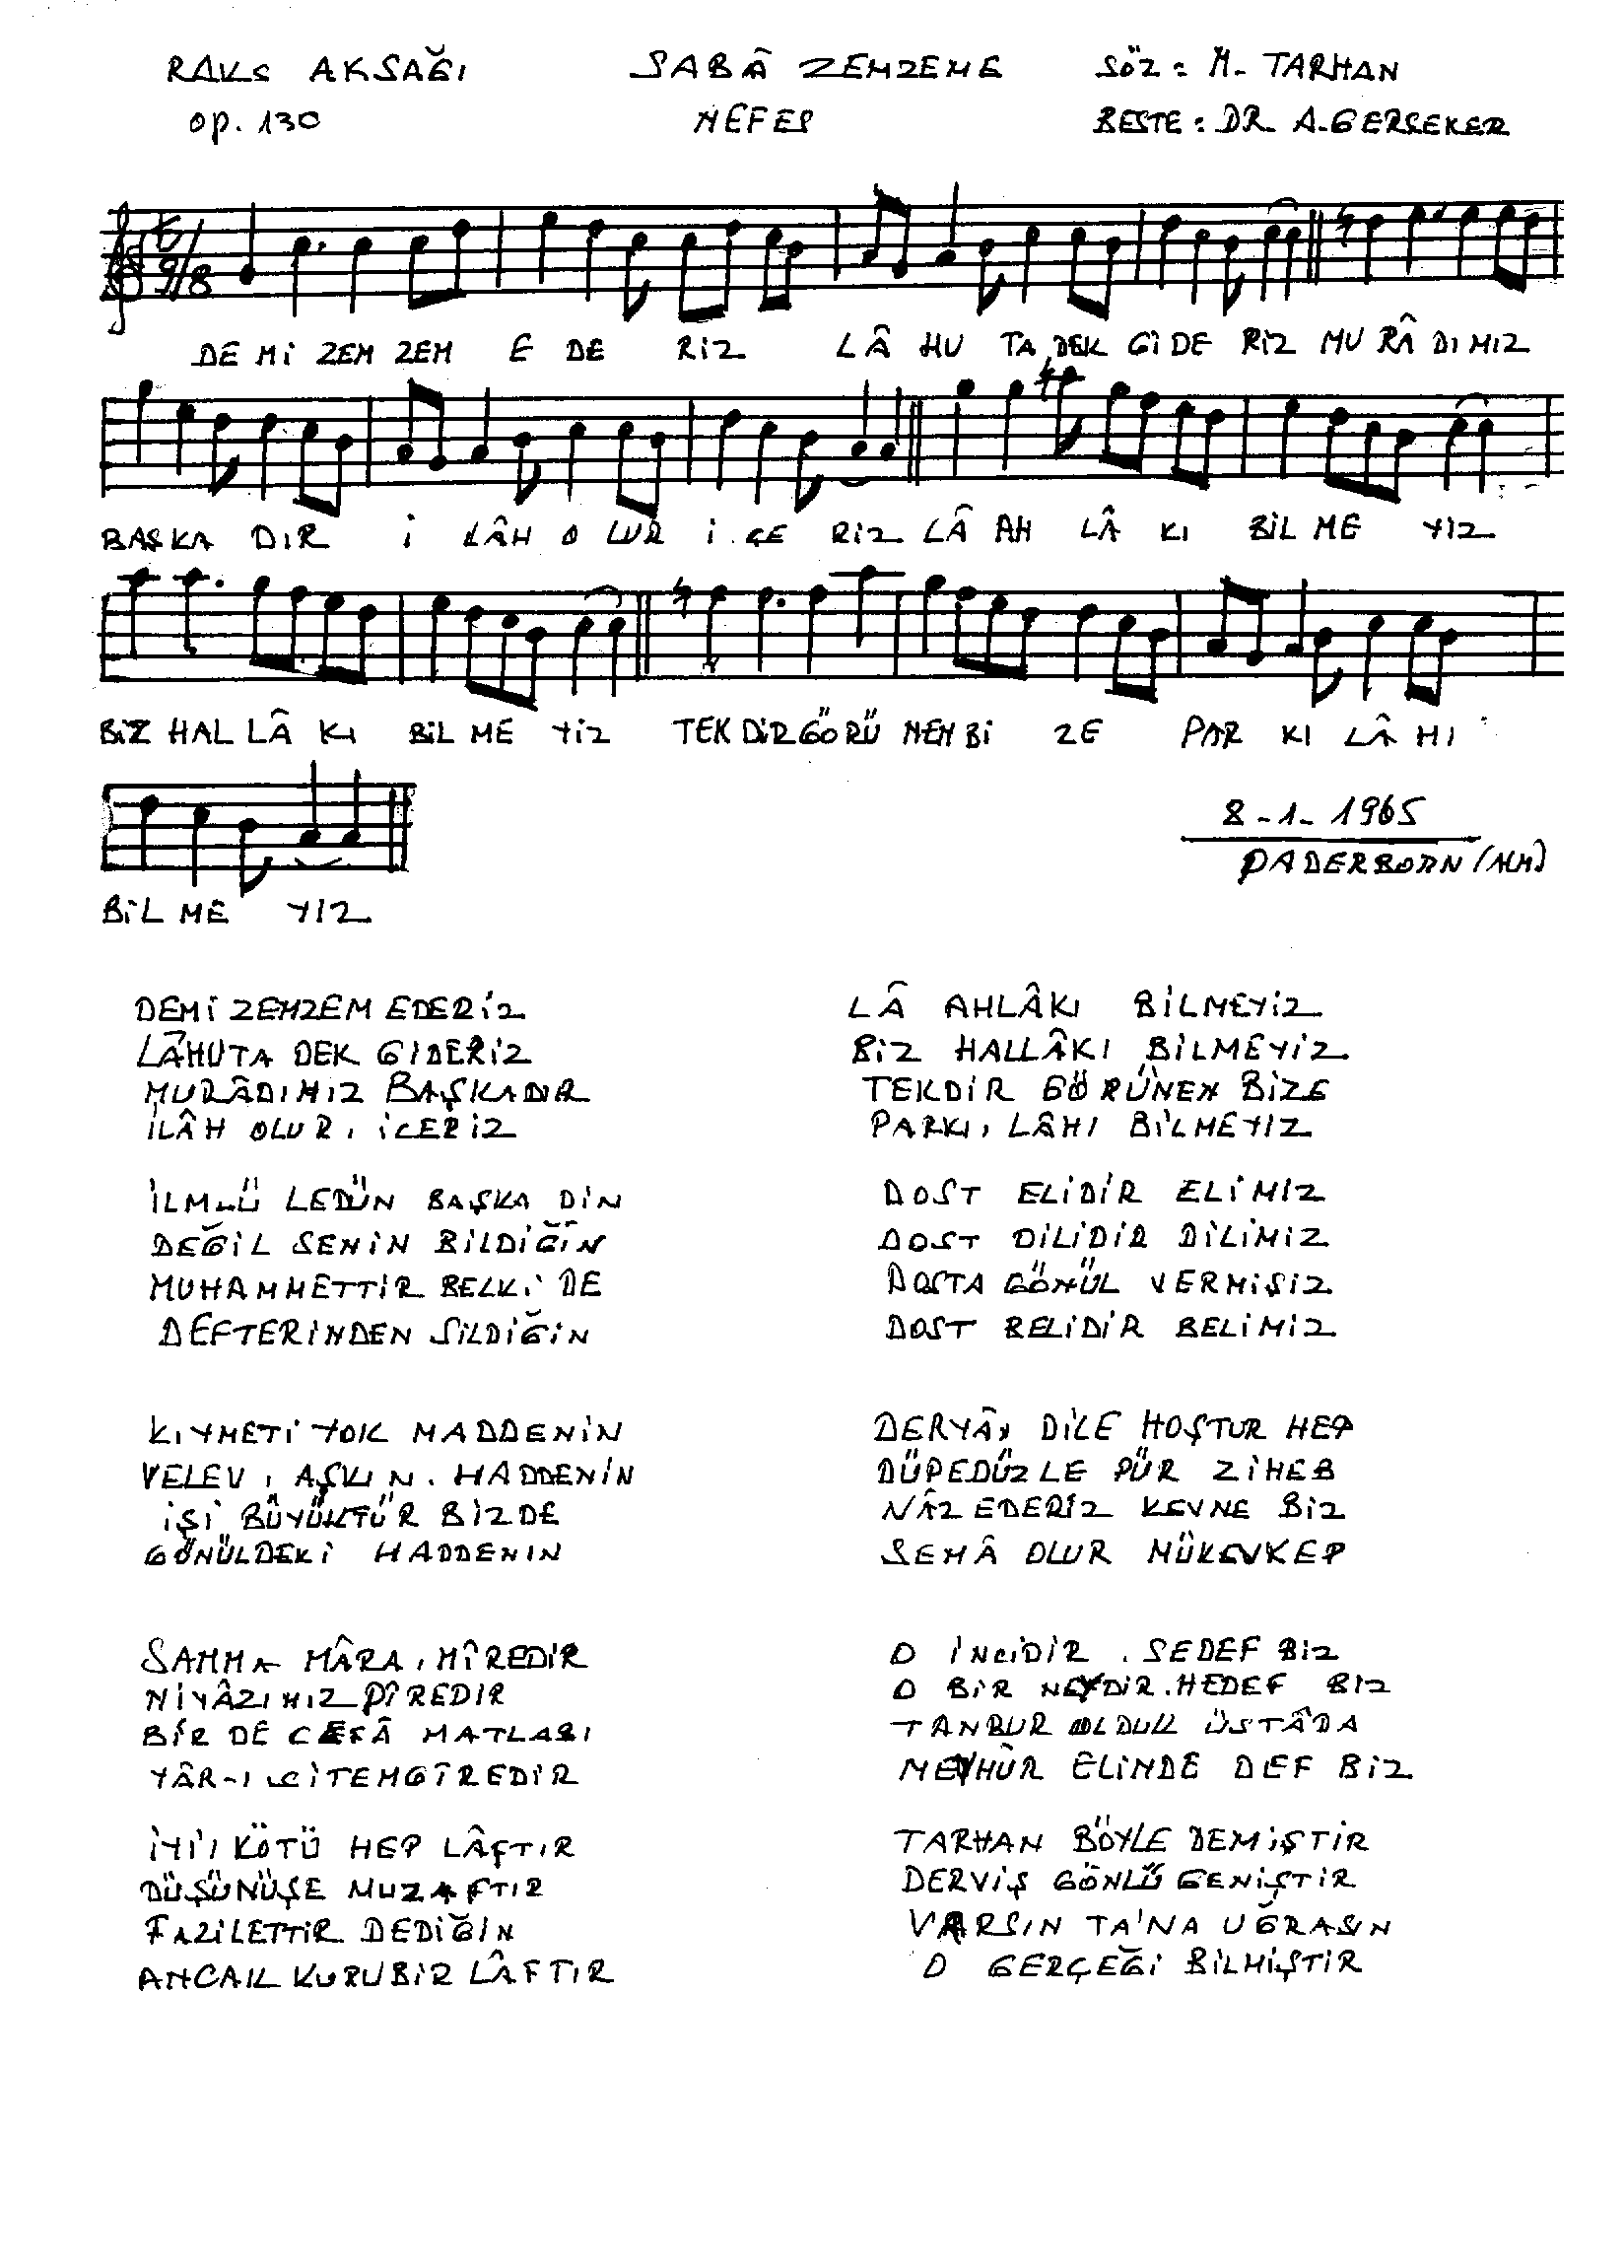 RAKS AKSAĞI
SABÂ ZEMZEME
SÖZ: M. TARHAN
OP. 130
NEFES
BESTE: DR. A. GERSEKER
9/8
DE Mİ ZEM ZEM E DE RİZ LÂ HU TA DEK Gİ DE RİZ MU RÂ DI MIZ
BAŞ KA DIR İ LÂH O LUR İ ÇE RİZ LÂ AH LÂ KI BİL ME YİZ
BİZ HAL LÂ KI BİL ME YİZ TEK DİR GÖ RÜ NEN Bİ ZE PAR KI LÂ MI
8-1-1965
PADERBORN (ALM)
BİL ME YİZ
DEMİ ZEMZEM EDERİZ
LÂHUTA DEK GİDERİZ
MURÂDIMIZ BAŞKADIR
İLÂH OLUR, İÇERİZ
İLM-Ü LEDÜN BAŞKA DİN
DEĞİL SENİN BİLDİĞİN
MUHAMMETTİR BELKİ DE
DEFTERİNDEN SİLDİĞİN
KIYMETİ YOK MADDENİN
VELEV, AŞKIN. HADDENİN
İŞİ BÜYÜKTÜR BİZDE
GÖNÜLDEKİ HADDENİN
SANMA MÂRA, MÎREDİR
NİYÂZIMIZ PÎREDİR
BİR DE CEFÂ MATLABI
YÂR-I SİTEMGÎREDİR
İYİ, KÖTÜ HEP LÂFTIR
DÜŞÜNÜŞE MUZAFTIR
FAZİLETTİR DEDİĞİN
ANCAK KURU BİR LÂFTIR
LÂ AHLÂKI BİLMEYİZ
BİZ HALLÂKI BİLMEYİZ
TEKDİR GÖRÜNEN BİZE
PARKI, LÂMI BİLMEYİZ
DOST ELİDİR ELİMİZ
DOST DİLİDİR DİLİMİZ
DOSTA GÖNÜL VERMİŞİZ
DOST BELİDİR BELİMİZ
DERYÂ, DİLE HOŞTUR HEP
DÜPEDÜZLE PÜR ZİHEB
NÂZ EDERİZ KEVNE BİZ
SEMÂ OLUR MÜKEVKEP
O İNCİDİR, SEDEF BİZ
O BİR NEYDİR. HEDEF BİZ
TANBUR OLDUK ÜSTÂDA
MEYHÛR ELİNDE DEF BİZ
TARHAN BÖYLE DEMİŞTİR
DERVİŞ GÖNLÜ GENİŞTİR
VARSIN TA'NA UĞRASIN
O GERÇEĞİ BİLMİŞTİR